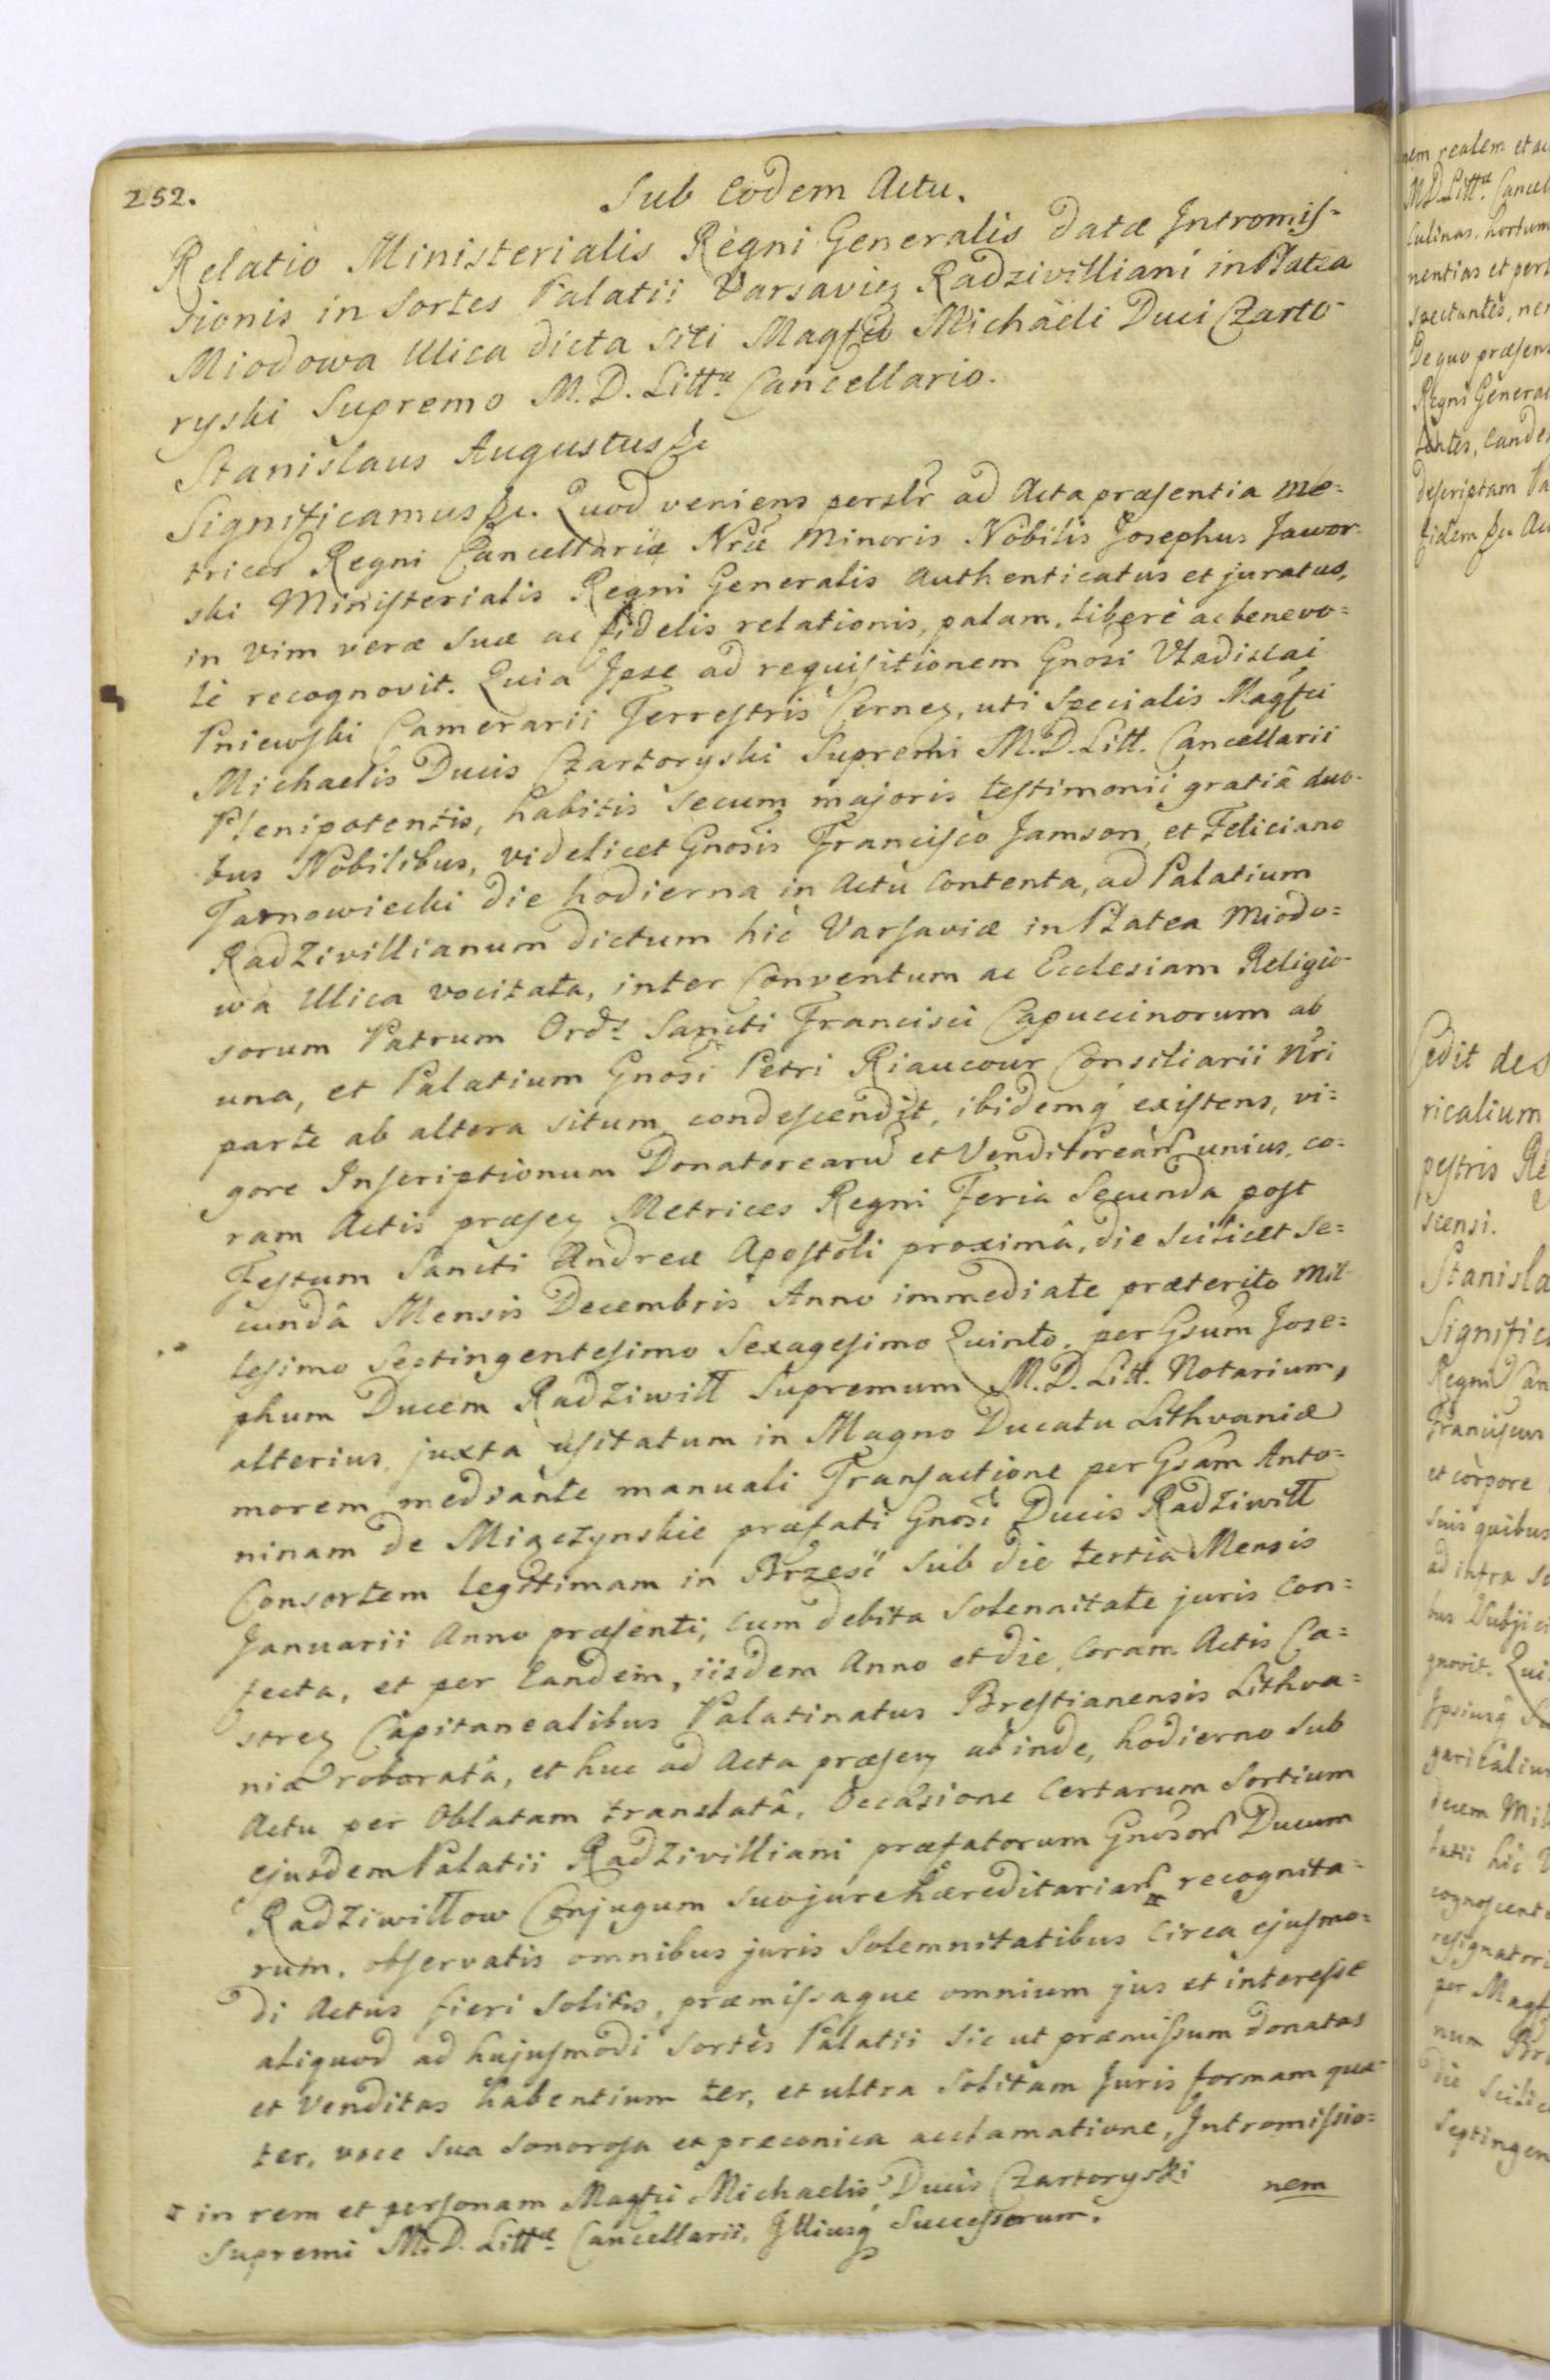 252.
Sub Eodem Actu.
Relatio Ministerialis Regni Generalis datæ Intromis-
sionis in Sortes Palatii Varsavien Radzivilliani in Platea
Miodowa Ulica dicta siti Magfco Michaëli Duci Czarto-
ryski Supremo M. D. Littæ Cancellario.
Stanislaus Augustus &c
Significamus &c. Quod veniens perslr ad Acta præsentia Me=
trices Regni Cancellariæ Nræ Minoris Nobilis Josephus Jawor-
ski Ministerialis Regni Generalis Authenticatus et juratus,
in vim veræ suæ ac fidelis relationis, palam, liberè ac benevo=
lè recognovit. Quia Ipse ad requisitionem Gnosi Vladislai
Pniewski Camerarii Terrestris Cernen, uti Specialis Magfci
Michaelis Ducis Czartoryski Supremi M. D. Litt. Cancellarii
Plenipotentis, habitis secum majoris testimonii gratiâ duo-
bus Nobilibus, videlicet Gnosis Francisco Jamson, et Feliciano
Tarnowiecki die hodierna in Actu Contenta, ad Palatium
Radzivillianum dictum hic Varsaviæ in Platea Miodo=
wa Ulica vocitata, inter Conventum ac Ecclesiam Religio-
sorum Patrum Ords Sancti Francisci Capuccinorum ab
una, et Palatium Gnosi Petri Riaucour Consiliarii Nri
parte ab altera situm condescendit, ibidemq existens, vi=
gore Inscriptionum Donatorearum et Venditorearum unius, co=
ram Actis præsen Metrices Regni Feria Secunda post
Festum Sancti Andreæ Apostoli proximâ, die scilicet Se=
cundâ Mensis Decembris Anno immediate præterito Mil-
lesimo Septingentesimo Sexagesimo Quinto, per Gsum Jose=
phum Ducem Radziwill Supremum M. D. Litt. Notarium,
alterius, juxta usitatum in Magno Ducatu Lithvaniæ
morem mediante manuali Transactione per Gsam Anto=
ninam de Miączynskie præfati Gnosi Ducis Radziwill
Consortem legitimam in Brzesć sub die tertia Mensis
Januarii Anno præsenti, cum debita Solennitate juris Con=
fecta, et per Eandem, iisdem Anno et die, Coram Actis Ca=
stren Capitanealibus Palatinatus Brestianensis Lithva=
niæ roboratâ, et huc ad Acta præsen ab inde, hodierno sub
Actu per Oblatam translatâ, Occasione Certarum Sortium
ejusdem Palatii Radzivilliani præfatorum Gnosorum Ducum
Radziwillow Conjugum suo jure hæreditariarum recognita=
rum, observatis omnibus juris Solemnitatibus Circa ejusmo=
di Actus fieri Solitis, præmissaque omnium jus et interesse
aliquod ad hujusmodi Sortes Palatii sic ut præmissum donatas
et Venditas habentium ter, et ultra Solitam Juris formam qua-
ter, voce sua sonorosa et præconica acclamatione, Intromissio=
nem
in rem et personam Magfci Michaelis Ducis Czartoryski
Supremi M. D. Littæ Cancellarii, Illiusq Successorum.
nem realem et
M D Littæ Cancel
Culinas, hortum
nentias et pert
spectantes, ne
De quo præsens
Regni General
descriptam Pa
fidem &c
Cedit de
ricalium
pestris Re
scensi.
Stanisla
Signific
Regni Can
Franciscus
et corpore
suis quibus
ad infra
gnovit. Qui
decem Mil
latii hic V
resignator
per Magf
die Scilic
Septingen